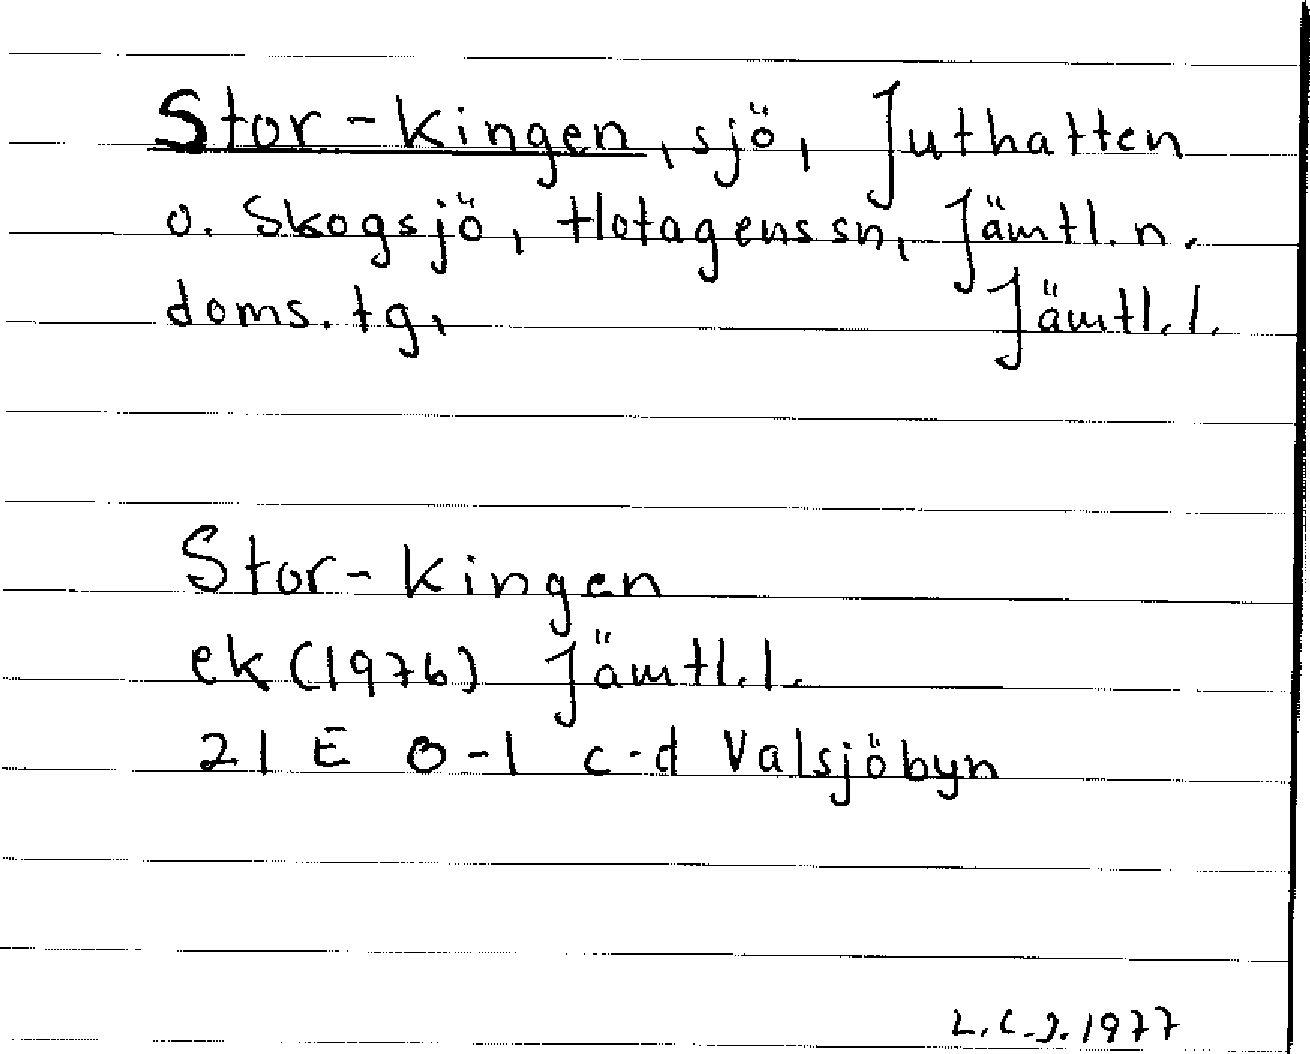 Stor-Kingen, sjö, Juthatten
o. Skogsjö, Hotagens sn, Jämtl. n.
doms. tg, Jämtl. l.
Stor-Kingen
ek (1976) Jämtl. l.
21 E 0-1 c-d Valsjöbyn
L.C.J. 1977